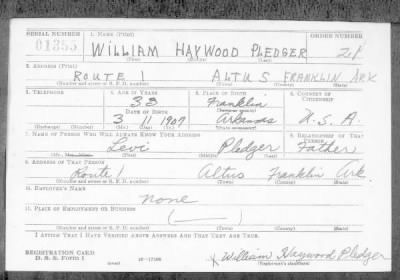 SERIAL NUMBER 1. NAME (Print) ORDER NUMBER
01355 WILLIAM HAYWOOD PLEDGER
(First) (Middle) (Last)
2. ADDRESS (Print)
ROUTE 1 ALTUS FRANKLIN ARK
(Number and street or R. F. D. number) (Town) (County) (State)
3. TELEPHONE 4. AGE IN YEARS 5. PLACE OF BIRTH 6. COUNTRY OF CITIZENSHIP
33 Franklin
DATE OF BIRTH (Town or county)
3 11 1907 Arkansas U.S.A.
(Exchange) (Number) (Mo.) (Day) (Yr.) (State or country)
7. NAME OF PERSON WHO WILL ALWAYS KNOW YOUR ADDRESS 8. RELATIONSHIP OF THAT PERSON
Levi Pledger Father
(Mr., Mrs., Miss) (First) (Middle) (Last)
9. ADDRESS OF THAT PERSON
Route 1 Altus Franklin Ark.
(Number and street or R. F. D. number) (Town) (County) (State)
10. EMPLOYER'S NAME
none
11. PLACE OF EMPLOYMENT OR BUSINESS
(Number and street or R. F. D. number) (Town) (County) (State)
I AFFIRM THAT I HAVE VERIFIED ABOVE ANSWERS AND THAT THEY ARE TRUE.
REGISTRATION CARD
D. S. S. FORM 1 (over) William Haywood Pledger
(Registrant's signature)